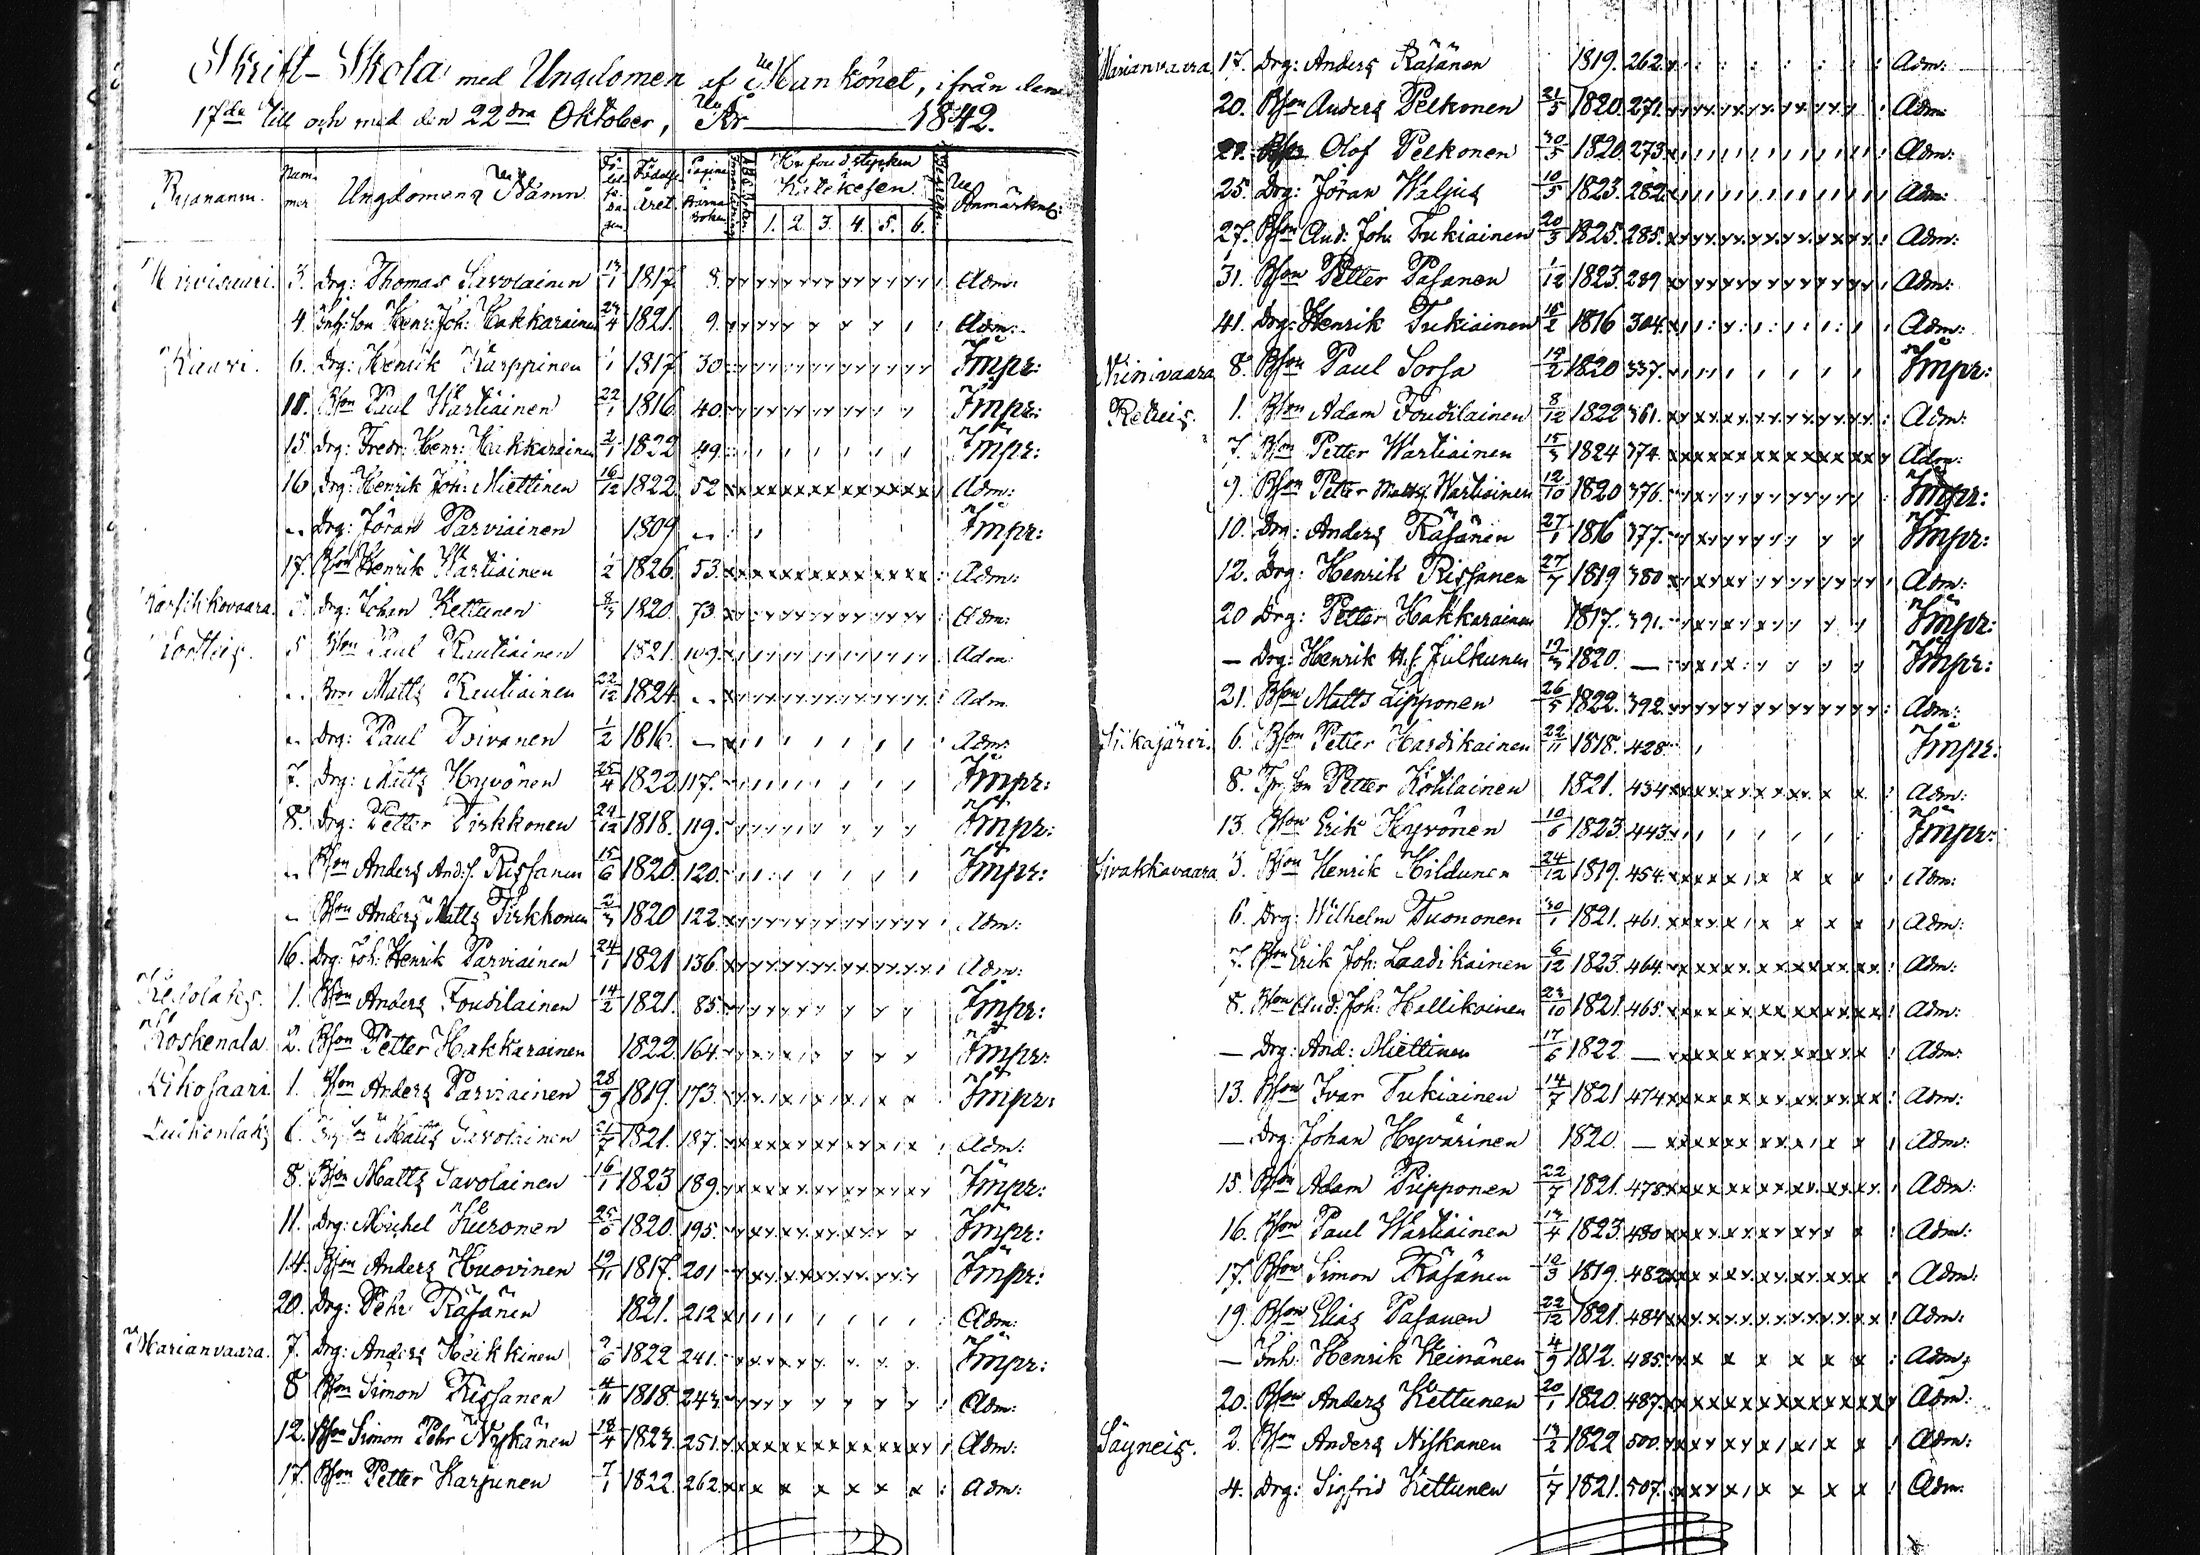 Skrift-Skola med Ungdomen af Mankönet, ifrån den
17de till och med den 22dra Oktober, År 1842.
Byanamn. Num-mer Ungdomens Namn Födelse Året Pagina Barnaboken Hufvudstycken Katekesen 1. 2. 3. 4. 5. 6. Anmärkn:
3. Drg: Thomas Savolainen 13/1 1817. 8. Adm:
4. Inh: Son Henr: Joh: Hakkarainen 24/4 1821. 9. Adm:
Kaavi. 6. Drg: Henrik Karppinen 1/1 1817. 30 Impr:
11. Bson Paul Wartiainen 22/1 1816 40 Impr:
15 Drg: Fredr: Henr: Hakkarainen 2/1 1822 49 Impr:
16 Drg: Henrik Joh: Miettinen 16/12 1822. 52 Adm:
Drg: Jöran Parviainen 1809 Impr:
17. Bson Henrik Wartiainen 1/2 1826. 53. Adm:
Karsikkovaara. Drg: Johan Kettunen 1820. 73. Adm:
Kortteis. 5 Bson Paul Rautiainen 1821. 109. Adm:
Matts Rautiainen 22/12 1824. Adm
Drg: Paul Toivanen 1/2 1816. — Adm:
7. Drg: Matts Hyvönen 25/4 1822 117. Impr:
8. Drg: Petter Pirkkonen 24/12 1818. 119. Impr:
Bson Anders And: s. Rissanen 15/6 1820. 120. Impr:
Bson Anders Matts Pirkkonen 2/3 1820 122. Adm:
16. Drg: Joh: Henrik Parviainen 24/1 1821 136. Adm:
1. Bson Anders Toudilainen 14/2 1821. 85. Impr:
Koskenala 2. Bson Petter Hakkarainen 1822 164. Impr:
Likosaari. 1. Bson Anders Parviainen 28/9 1819. 173. Impr:
Luikonlaks 6. Matts Savolainen 21/7 1821. 187. Adm:
8. Bson Matts Savolainen 16/1 1823 189. Impr:
11. Drg: Michel Kuronen 25/6 1820. 195. Impr:
14. Bson Anders Huovinen 19/11 1817. 201 Impr:
20. Drg: Pehr Räsänen 1821. 212 Adm:
Marianvaara. 7. Drg: Anders Heikkinen 9/6 1822 241. Impr:
8 Bson Simon Rissanen 4/11 1818. 243. Adm:
12. Bson Simon Pehr Nykänen 18/4 1823. 251. Adm:
17. Bson Petter Karjunen 7/1 1822. 262. Adm:
Marianvaara 17. Drg: Anders Räsänen 1819. 262. Adm:
20. Bson Anders Pelkonen 21/5 1820. 271. Adm
21. Olof Pelkonen 30/5 1820. 273. Adm:
25. Drg: Jöran Waljus 10/5 1823. 282. Adm:
27. Bson And: Joh: Tukiainen 20/3 1825. 285. Adm:
31. Bson Petter Pasanen 1/12 1823. 289 Adm:
41. Drg: Henrik Tukiainen 15/2 1816 304. Adm:
Niinivaara 8. Bson Paul Sorsa 19/2 1820 337. Impr:
Retuis. 1. Bson Adam Toudilainen 8/12 1822 361. Adm:
7. Bson Petter Wartiainen 15/3 1824 374. Adm:
9. Bson Petter Matts: Wartiainen 12/10 1820 376. Impr:
10. Drg: Anders Räsänen 27/1 1816 377. Impr:
12. Drg: Henrik Rissanen 27/7 1819 380 Adm:
20 Drg: Petter Hakkarainen 1817. 391. Impr:
— Drg: Henrik H. s. Julkunen 12/3 1820. — Impr:
21. Bson Matts Lipponen 26/5 1822. 392. Adm:
Siikajärvi. 6. Bson Petter Hardikainen 22/11 1818. 428. Impr:
8. Petter Kohlainen 1821. 434 Adm:
13. Bson Erik Hyvönen 10/6 1823. 443. Impr:
Sivakkavaara 3. Bson Henrik Hildunen 24/12 1819. 454. Adm:
6. Drg: Wilhelm Tuononen 30/1 1821. 461. Adm:
7. Bson Erik Joh: Laadikainen 6/12 1823. 464. Adm:
8. Bson Aud: Joh: Hallikainen 23/10 1821. 465. Adm:
— Drg: And: Miettinen 17/6 1822. — Adm:
13. Bson Ivar Tukiainen 14/7 1821 474 Adm:
— Drg: Johan Hyvärinen 1820. — Adm:
15. Bson Adam Pripponen 22/7 1821. 478 Adm:
16. Bson Paul Wartiainen 14/4 1823. 480 Adm:
17. Bson Simon Räsänen 10/3 1819. 482 Adm:
19. Bson Elias Pasanen 22/12 1821. 484 Adm:
— Inh: Henrik Keinänen 4/9 1812. 485. Adm:
20. Bson Anders Kettunen 20/1 1820. 487. Adm:
Säyneis. 2. Bson Anders Niskanen 13/2 1822 500. Adm:
4. Drg: Sigfrid Kettunen 1/7 1821. 507. Adm: